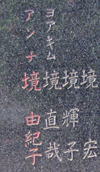 境 宏
境 輝子
ヨアキム 境 直哉
アンナ 境 由紀子